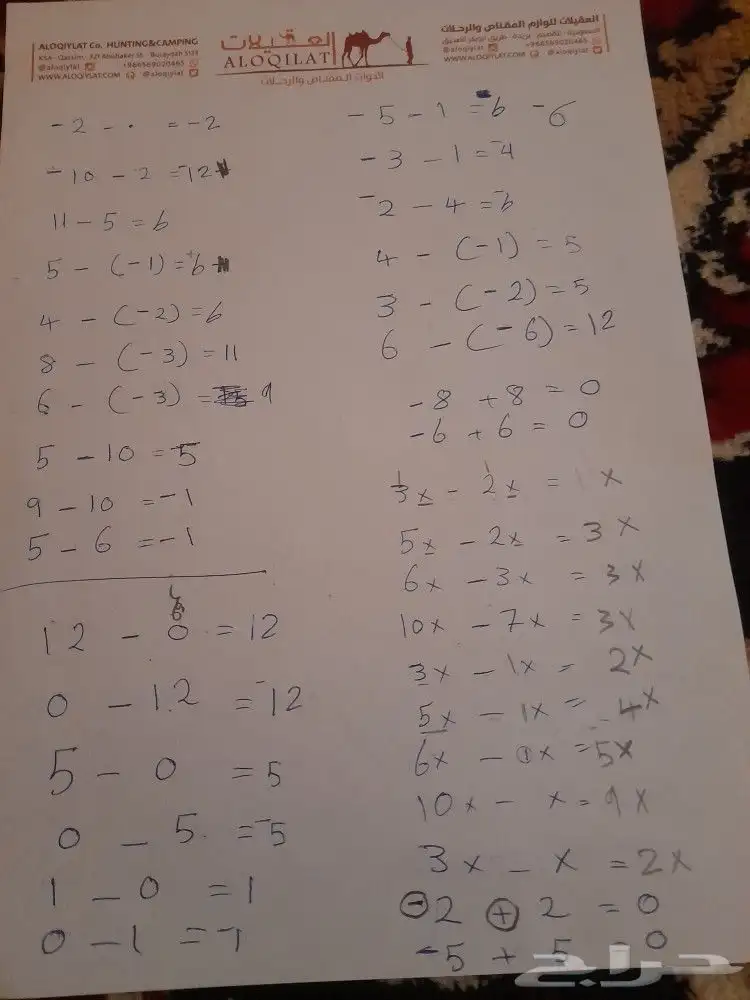 ALOQIYLAT Co. HUNTING&CAMPING
@aloqiylat
+966569020465
WWW.ALOQIYLAT.COM @aloqiylat
العقيلات
ALOQILAT
أدوات المقناص والرحلات
العقيلات للوازم المقناص والرحلات
@aloqiylat +966569020465
WWW.ALOQIYLAT.COM @aloqiylat
-2 - · = -2
-10 - 2 = -12
11 - 5 = 6
5 - (-1) = +6
4 - (-2) = 6
8 - (-3) = 11
6 - (-3) = 9
5 - 10 = -5
9 - 10 = -1
5 - 6 = -1
12 - 0 = 12
0 - 12 = -12
5 - 0 = 5
0 - 5 = -5
1 - 0 = 1
0 - 1 = -1
-5 - 1 = -6 -6
-3 - 1 = -4
-2 - 4 = -6
4 - (-1) = 5
3 - (-2) = 5
6 - (-6) = 12
-8 + 8 = 0
-6 + 6 = 0
3x - 2x = 1x
5x - 2x = 3x
6x - 3x = 3x
10x - 7x = 3x
3x - 1x = 2x
5x - 1x = 4x
6x - 1x = 5x
10x - x = 9x
3x - x = 2x
-2 + 2 = 0
-5 + 5 = 0
حراج